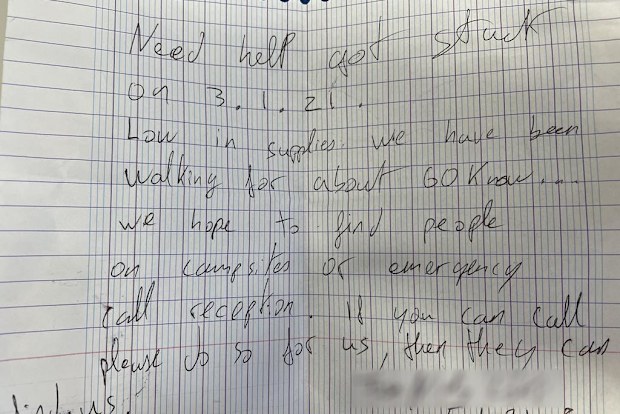 Need help got stuck
on 3.1.21.
Low in supplies. we have been
walking for about 60 Know....
we hope to find people
on campsites or emergency
call reception. If you can call
please do so for us, then they can
find us.